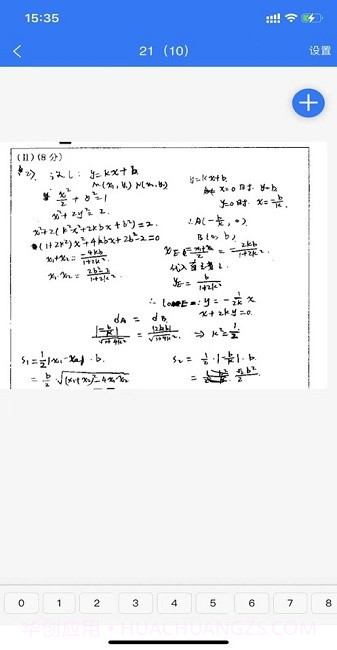 15:35
21（10）
设置
(II)(8分)
设 l: y=kx+b
M(x₁, y₁) N(x₂, y₂)
x²/2 + y² = 1
x²+2y²=2.
x²+2(k²x²+2kbx+b²)=2.
(1+2k²)x²+4kbx+2b²-2=0
x₁+x₂= -4kb/1+2k²
x₁·x₂= 2b²-2/1+2k²
y=kx+b.
x=0 时 y=b.
y=0 时. x=-b/k.
∴A(-b/k, 0)
B(0, b)
x_E = x₁+x₂/2 = -2kb/1+2k²
y_E = b/1+2k²
y=-1/2k x
x+2ky=0.
d_A = d_B
|-b/k|/√1+4k² = |2bk|/√1+4k² ⇒ k²=1/2
S₁=1/2|x₁-x₂|·b.
= b/2·√(x₁+x₂)²-4x₁x₂
S₂ = 1/2·|-b/k|·b.
0 1 2 3 4 5 6 7 8
华创应用·HUACHUANGZS.COM